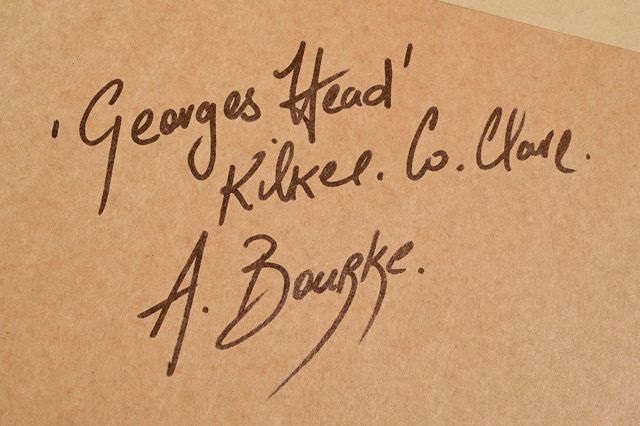 'Georges Head'
Kilkee. Co. Clare.
A. Bourke.